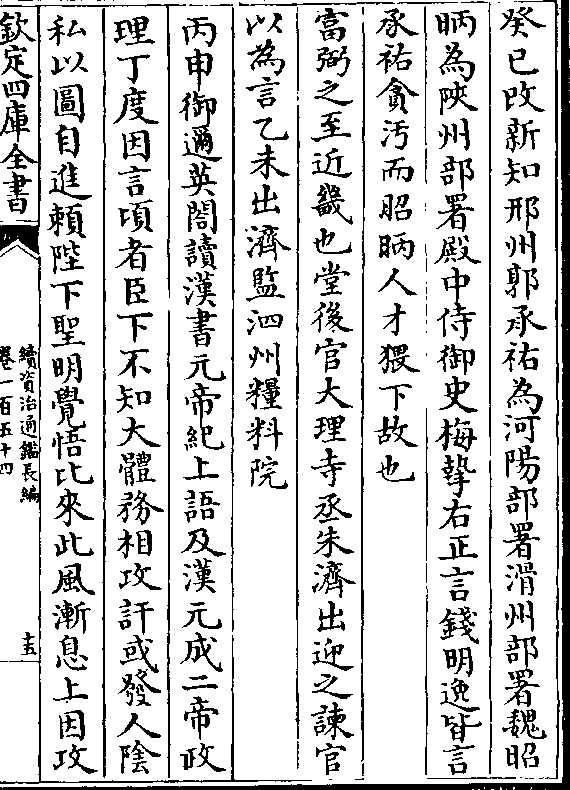 癸巳改新知邢州郭承祐為河陽部署滑州部署魏昭
昞為陜州部署殿中侍御史梅摯右正言錢明逸皆言
承祐貪汚而昭昞人才猥下故也
富弼之至近畿也堂後官大理寺丞朱濟出迎之諫官
以為言乙未出濟監泗州糧料院
丙申御邇英閣讀漢書元帝紀上語及漢元成二帝政
理丁度因言頃者臣下不知大體務相攻訐或發人陰
私以圖自進賴陛下聖明覺悟比來此風漸息上因攻
欽定四庫全書
續資治通鑑長編
卷一百五十四
十五